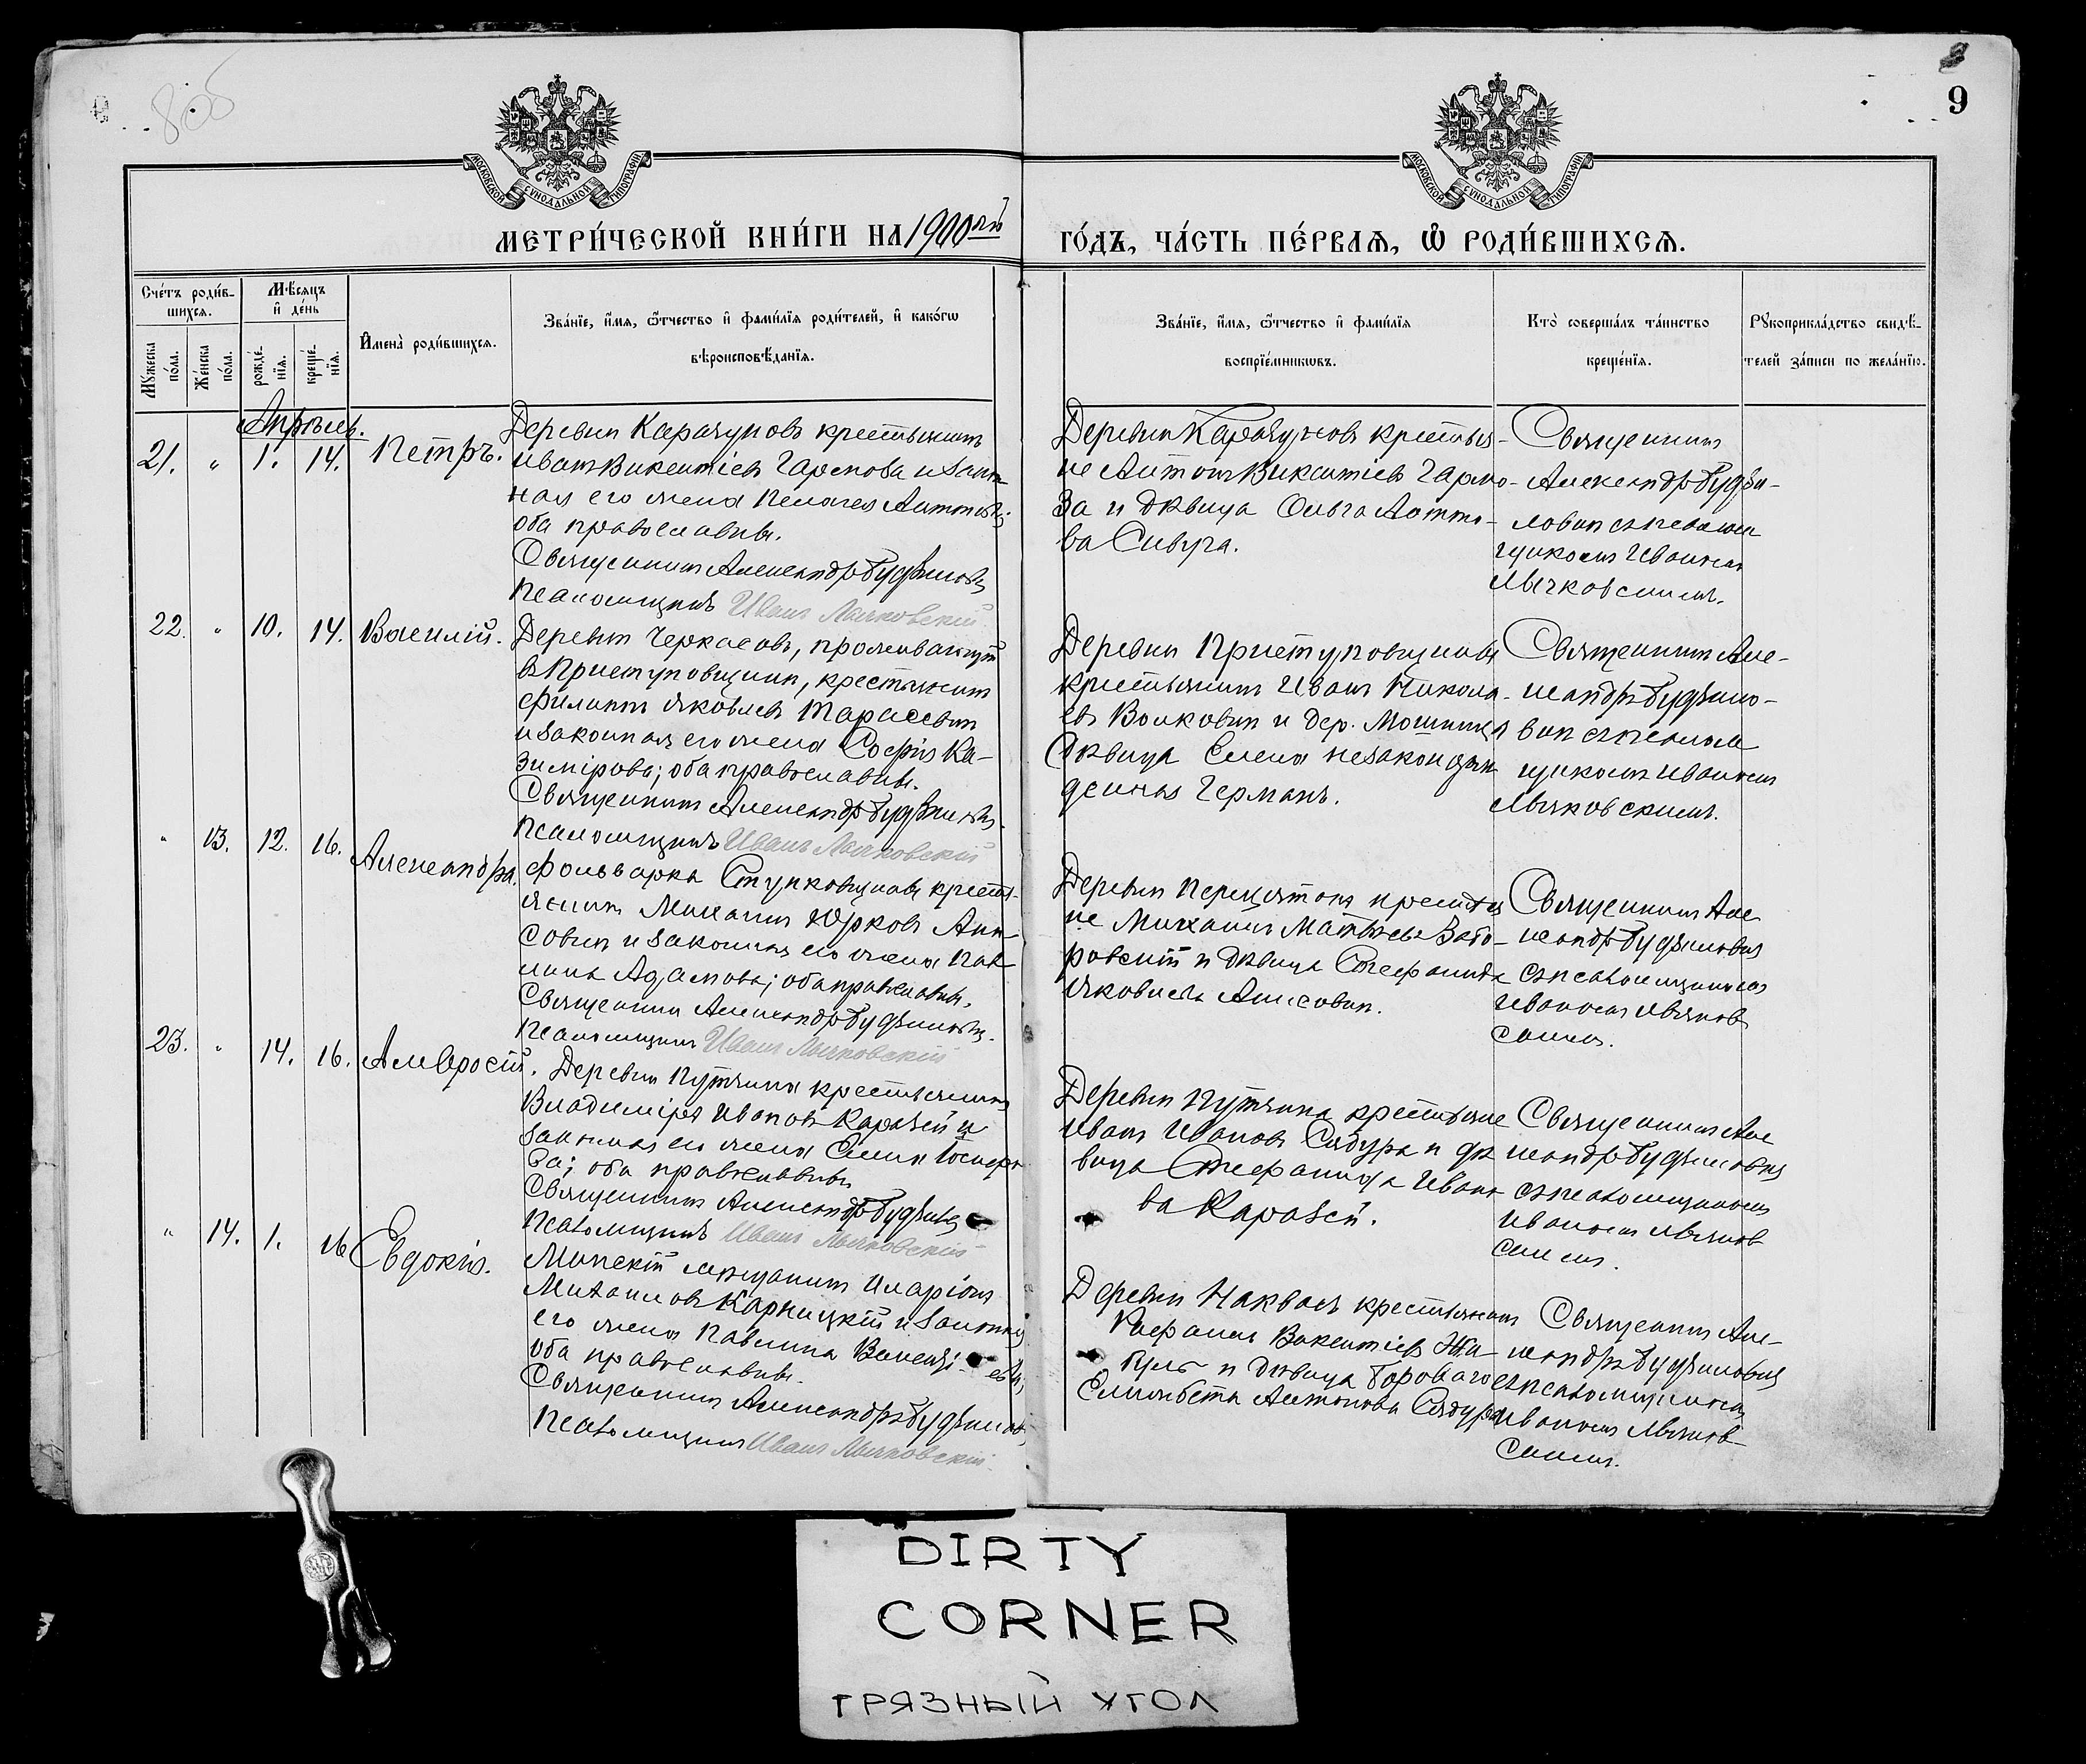 805
9
МОСКОВСКОЙ СѴНОДАЛЬНОЙ ТИПОГРАФІИ
МОСКОВСКОЙ СѴНОДАЛЬНОЙ ТИПОГРАФІИ
МЕТРИ́ЧЕСКОЙ КНИ́ГИ НА 1900ый
ГО́ДЪ, ЧА́СТЬ ПЕ́РВАѦ, Ѡ РОДИ́ВШИХСѦ.
Сче́тъ роди́в-
шихсѧ.
Мꙋ́жеска по́ла.
Же́нска по́ла.
Мѣ́сѧцъ
и҆ де́нь
рожде́-
нїѧ.
креще́-
нїѧ.
И҆мена̀ роди́вшихсѧ.
Зва́нїе, и҆́мѧ, ѻ҆́тчество и҆ фами́лїѧ роди́телей, и҆ како́гѡ
вѣроисповѣ́данїѧ.
Зва́нїе, и҆́мѧ, ѻ҆́тчество и҆ фами́лїѧ
воспрїе́мникѡвъ.
Кто̀ соверша́лъ та́инство
креще́нїѧ.
Рꙋкоприкла́дство свидѣ́-
телей за́писи по жела́нїю.
Апрѣль.
21. " 1. 14. Петръ.
Деревни Карачуновъ крестьянинъ
Иванъ Викентіевъ и закон-
ная его жена Антонова;
оба православны.
Священникъ Александръ Будзиловичъ
Псаломщикъ Иванъ Лычковскій
Деревни Карачуновъ крестья-
не Антонъ Викентіевъ
за и дѣвица Ольга Анто-
ва
Священникъ
Александръ Будзи-
ловичъ съ псалом
щикомъ Иваномъ
Лычковскимъ.
22. " 10. 14. Василій.
Деревни Черкасовъ, проживающій
въ Приступовщинѣ, крестьянинъ
Филиппъ Яковлевъ Тарасевич
и законная его жена Софія Ка-
зимірова; оба православны.
Священникъ Александръ Будзиловичъ.
Псаломщикъ Иванъ Лычковскій
Деревни Приступовщины
крестьянинъ Иванъ Никола-
евъ Волкович и дер.
дѣвица Елена незаконорож
денная Германъ.
Священникъ Але-
ксандръ Будзило-
вич съ псалом
щикомъ Иваномъ
Лычковскимъ.
" 13. 12. 16. Александра.
Фольварка крестья-
янинъ Михаилъ Юрковъ Анис
сович и законная его жена Пав
лина Адамова; оба православны.
Священникъ Александръ Будзиловичъ.
Псаломщикъ Иванъ Лычковскій
Деревни крестья
не Михаилъ Матвѣевъ
ровскій и дѣвица Стефанида
Яковлева Анисович.
Священникъ Але
ксандръ Будзиловичъ
съ псаломщикомъ
Иваномъ Лычков
скимъ.
23. " 14. 16. Амвросій.
Деревни Путчина крестьянинъ
Владиміръ Ивановъ Каразей и
законная его жена Елена Іосифо
ва; оба православны
Священникъ Александръ Будзиловичъ
Псаломщикъ Иванъ Лычковскій
Деревни Путчина крестьяне
Иванъ Ивановъ Сядура и дѣ
вица Стефанида Ивано
ва Каразей.
Священникъ Але
ксандръ Будзиловичъ
съ псаломщикомъ
Иваномъ Лычков
скимъ.
" 14. 1. 16 Евдокія.
Минскій мѣщанинъ Иларіонъ
Михаиловъ Карницкій и законная
его жена Павлина Викенті-ева;
оба православны.
Священникъ Александръ Будзиловичъ
Псаломщикъ Иванъ Лычковскій
Деревни Наквасъ крестьянинъ
Рафаилъ Викентіевъ Жи-
гуль и дѣвица Бороваго
Елизавета Антонова Сядура
Священникъ Але-
ксандръ Будзиловичъ
съ псаломщикомъ
Иваномъ Лычков
скимъ.
DIRTY
CORNER
ГРЯЗНЫЙ УГОЛ